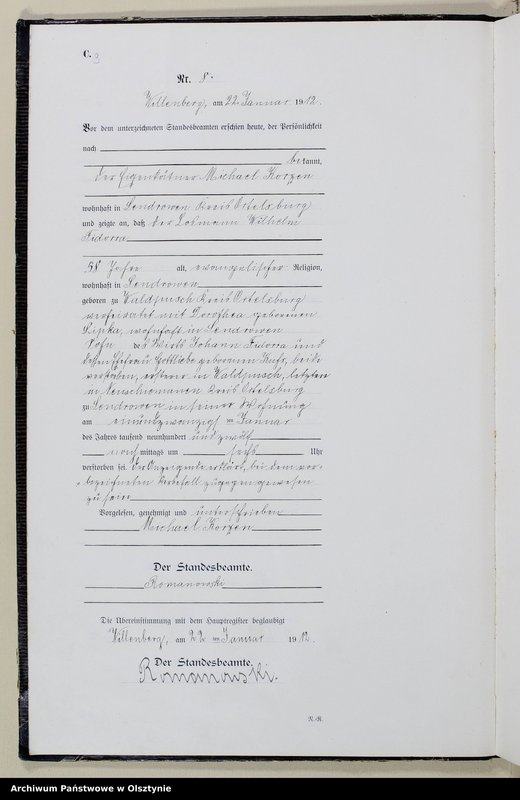 C.
Nr. 8.
Willenberg, am 22. Januar 1912.
Vor dem unterzeichneten Standesbeamten erschien heute, der Persönlichkeit
nach
bekannt,
der Eigenkätner Michael Korzen
wohnhaft in Sendrowen Kreis Ortelsburg
und zeigte an, daß der Losmann Wilhelm
Fidorra
58 Jahre alt, evangelischer Religion,
wohnhaft in Sendrowen
geboren zu Waldpusch Kreis Ortelsburg
verheiratet mit Dorothea geborenen
Lipka, wohnhaft in Sendrowen
Sohn des Wirts Johann Fidorra und
dessen Ehefrau Gottliebe geborenen beide
verstorben, ersterer in Waldpusch, letztere
in Kreis Ortelsburg
zu Sendrowen in seiner Wohnung
am einundzwanzigsten Januar
des Jahres tausend neunhundert und zwölf
nachmittags um sechs Uhr
verstorben sei. Der Anzeigende erklärt, bei dem vor-
bezeichneten Sterbefall zugegen gewesen
zu sein
Vorgelesen, genehmigt und unterschrieben
Michael Korzen
Der Standesbeamte.
Romanowski
Die Übereinstimmung mit dem Hauptregister beglaubigt
Willenberg, am 22 ten Januar 1912.
Der Standesbeamte.
Romanowski.
N.-R.
Archiwum Państwowe w Olsztynie